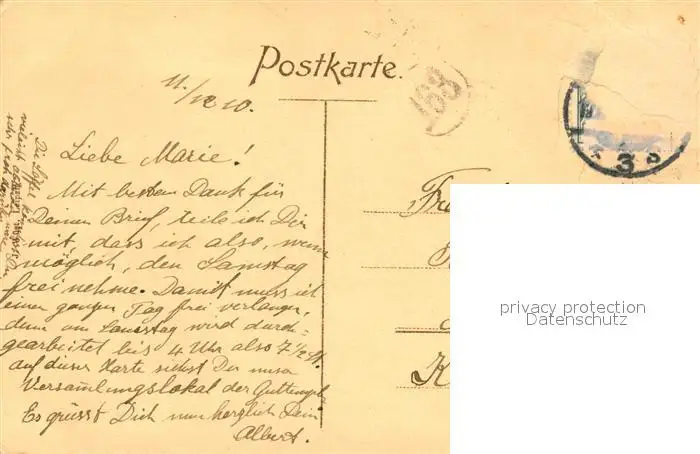 Postkarte.
168
11./12 10.
Liebe Marie!
Mit besten Dank für
Deinen Brief, teile ich Dir
mit, dass ich also, wenn
möglich, den Samstag
frei nehme. Damit muss ich
einen ganzen Tag frei verlangen,
denn am Samstag wird durch=
gearbeitet bis 4 Uhr also 7 1/2 St.
auf dieser Karte siehst Du unser
Versamlungslokal der Guttempler
Es grüsst Dich nun herzlich Dein
Albert.
3
K
privacy protection
Datenschutz